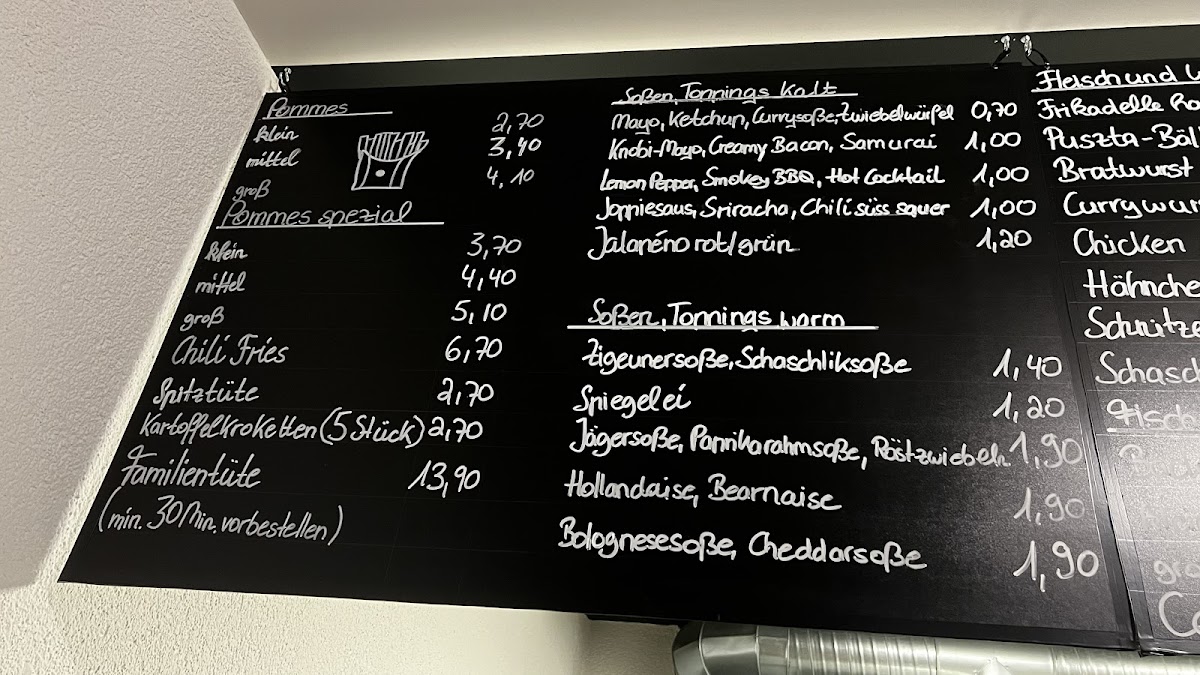 Pommes
klein 2,70
mittel 3,40
groß 4,10
Pommes spezial
klein 3,70
mittel 4,40
groß 5,10
Chili Fries 6,70
Spitztüte 2,70
Kartoffelkroketten (5 Stück) 2,70
Familientüte 13,90
(min. 30 Min. vorbestellen)
Soßen, Toppings kalt
Mayo, Ketchup, Currysoße, Zwiebelwürfel 0,70
Knobi-Mayo, Creamy Bacon, Samurai 1,00
Lemon Pepper, Smokey BBQ, Hot Cocktail 1,00
Joppiesaus, Sriracha, Chili süss sauer 1,00
Jalapéno rot/grün 1,20
Soßen, Toppings warm
Zigeunersoße, Schaschliksoße 1,40
Spiegelei 1,20
Jägersoße, Paprikarahmsoße, Röstzwiebeln 1,90
Hollandaise, Bearnaise 1,90
Bolognesesoße, Cheddarsoße 1,90
Fleisch und
Frikadelle
Puszta-
Bratwurst
Chicken